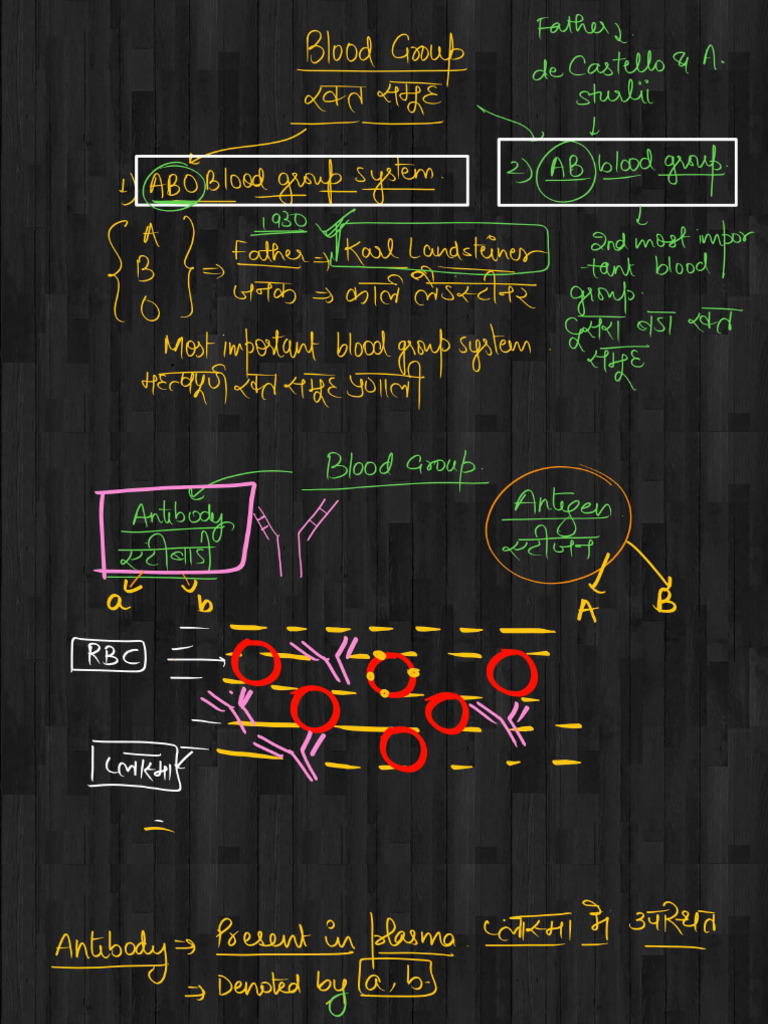 Blood Group
रक्त समूह
Father
de Castello & A.
sturlii
1) ABO Blood group system.
2) AB blood group.
{ A B O } ⇒
1930
Father → Karl Landsteiner
जनक → कार्ल लैंडस्टीनर
Most important blood group system
महत्वपूर्ण रक्त समूह प्रणाली
2nd most impor
-tant blood
group.
दूसरा बडा रक्त
समूह
Blood Group.
Antibody
एन्टीबाडी
a b
Antigen
एन्टीजन
A B
RBC
प्लाज्मा
Antibody → Present in plasma. प्लाज्मा मे उपस्थित
→ Denoted by a, b.